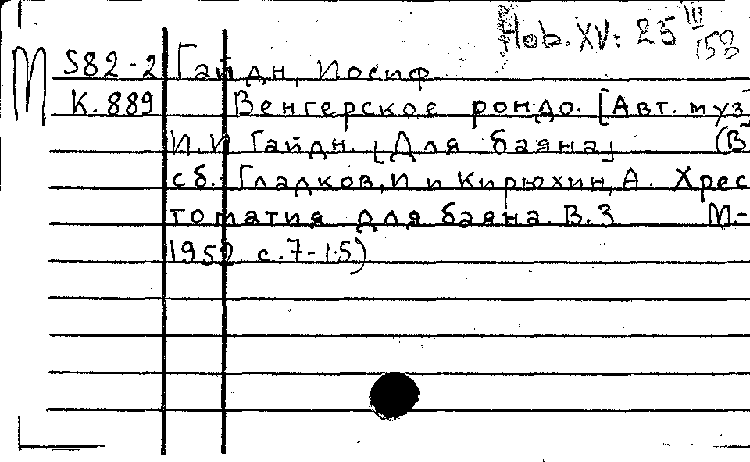 Hob. XV: 25 III
153
М
S82-2 Гайдн, Иосиф
К.889 Венгерское рондо. [Авт. муз]
И.И Гайдн. [Для баяна] (В
сб. Гладков, И и Кирюхин, А. Хрес
томатия для баяна. В.3 М-
1952 с.7-15)